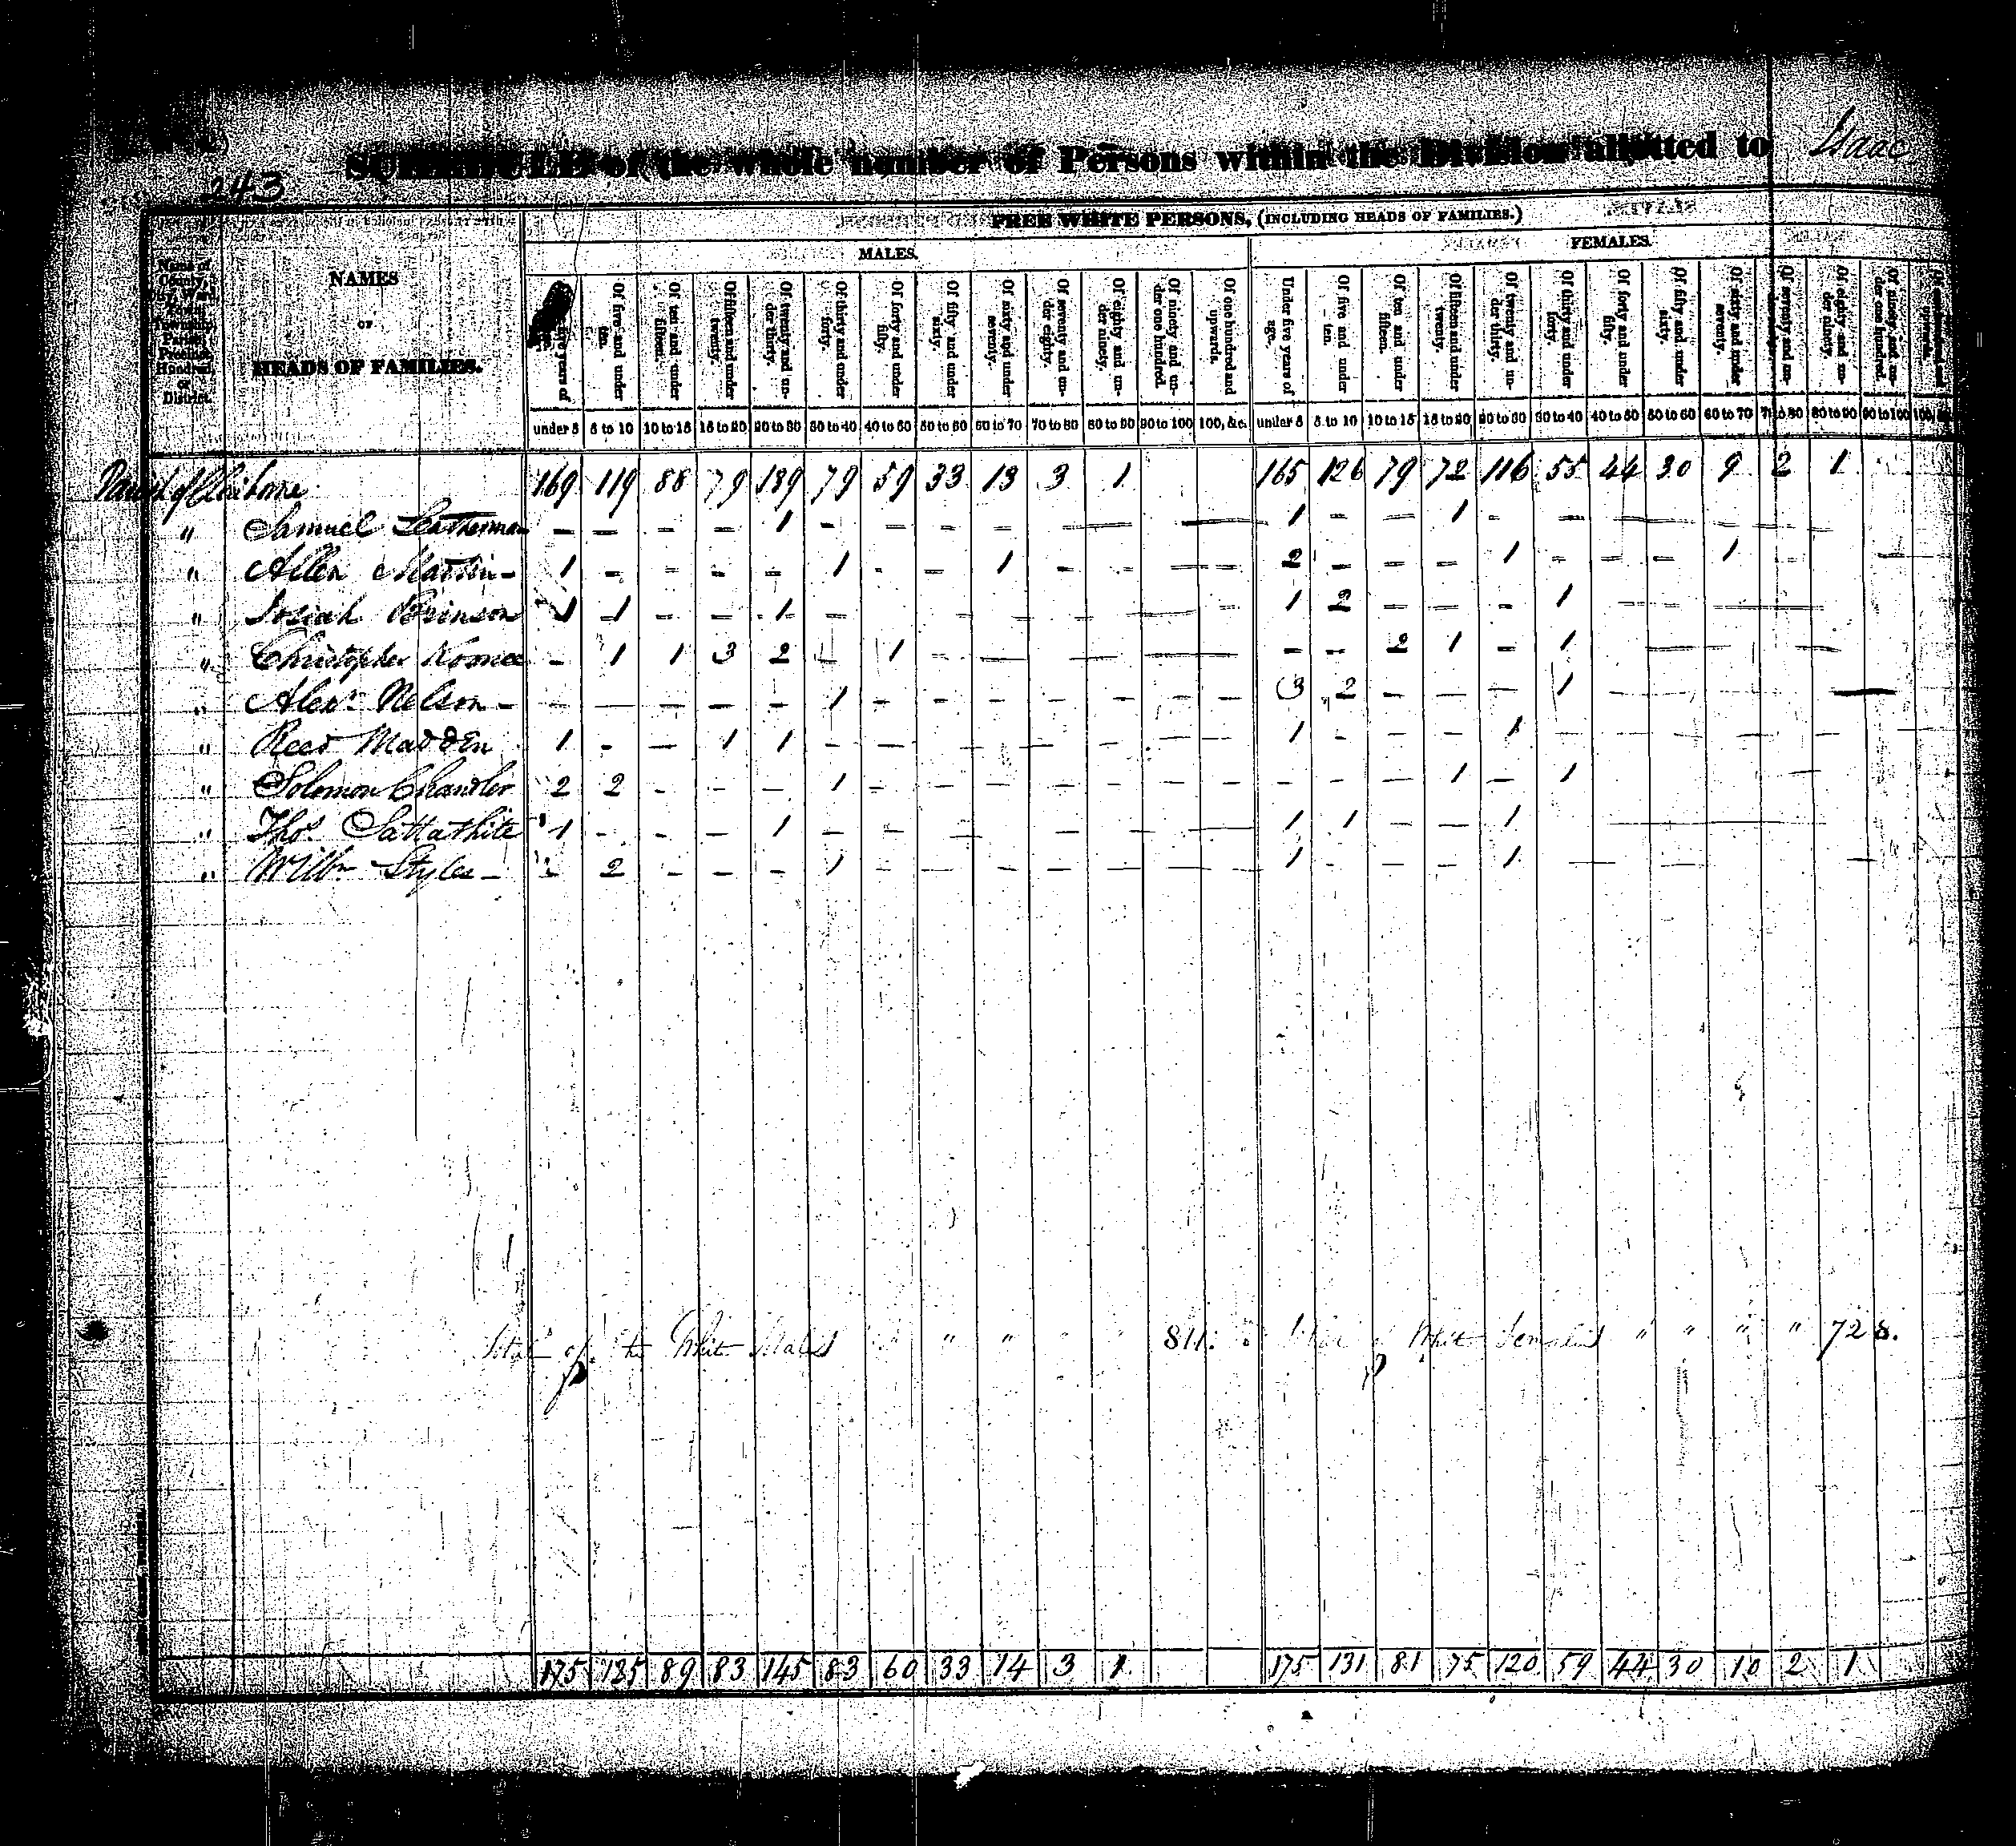 243
SCHEDULE of the whole number of Persons within the Division allotted to Isaac
FREE WHITE PERSONS, (INCLUDING HEADS OF FAMILIES.)
MALES. FEMALES.
Name of County, City, Ward, Town, Township, Parish, Precinct, Hundred, or District.
NAMES
OF
HEADS OF FAMILIES.
five years of
Of five and under ten.
Of ten and under fifteen.
Of fifteen and under twenty.
Of twenty and under thirty.
Of thirty and under forty.
Of forty and under fifty.
Of fifty and under sixty.
Of sixty and under seventy.
Of seventy and under eighty.
Of eighty and under ninety.
Of ninety and under one hundred.
Of one hundred and upwards.
Under five years of age.
Of five and under ten.
Of ten and under fifteen.
Of fifteen and under twenty.
Of twenty and under thirty.
Of thirty and under forty.
Of forty and under fifty.
Of fifty and under sixty.
Of sixty and under seventy.
Of seventy and un-
Of eighty and under ninety.
Of ninety and under one hundred.
under 5 5 to 10 10 to 15 15 to 20 20 to 30 30 to 40 40 to 50 50 to 60 60 to 70 70 to 80 80 to 90 90 to 100 100, &c. under 5 5 to 10 10 to 15 15 to 20 20 to 30 30 to 40 40 to 50 50 to 60 60 to 70 70 to 80 80 to 90 90 to 100
Parish of Claiborne 169 119 88 79 139 79 59 33 13 3 1 165 126 79 72 116 55 44 30 9 2 1
" Samuel Leatherman – – – – 1 – – – – – – 1 – – 1 – – –
" Allen Martin – 1 – – – – 1 – – 1 – – – – 2 – – – 1 – – – 1 – –
" Josiah Brinson 1 1 – – 1 – – – – – – 1 2 – – – 1 – –
" Christopher Koonce – 1 1 3 2 – 1 – – – – – – 2 1 – 1 – –
" Alexr. Nelson – – – – – – 1 – – – – – – – 3 2 – – – 1 – – – –
" Reed Madden 1 – – 1 1 – – – – – – – 1 – – – 1 – – – – –
" Solomon Chandler 2 2 – – – 1 – – – – – – – – – – 1 – 1 – – –
" Thos. Sattathite 1 – – – 1 – – – – – – 1 1 – – 1 –
" Willm Styles – – 2 – – – 1 – – – – – – – 1 – – – 1 – – –
Total of the White Males " " " " 811. of White Females " " " " 728.
175 125 89 83 145 83 60 33 14 3 1 175 131 81 75 120 59 44 30 10 2 1